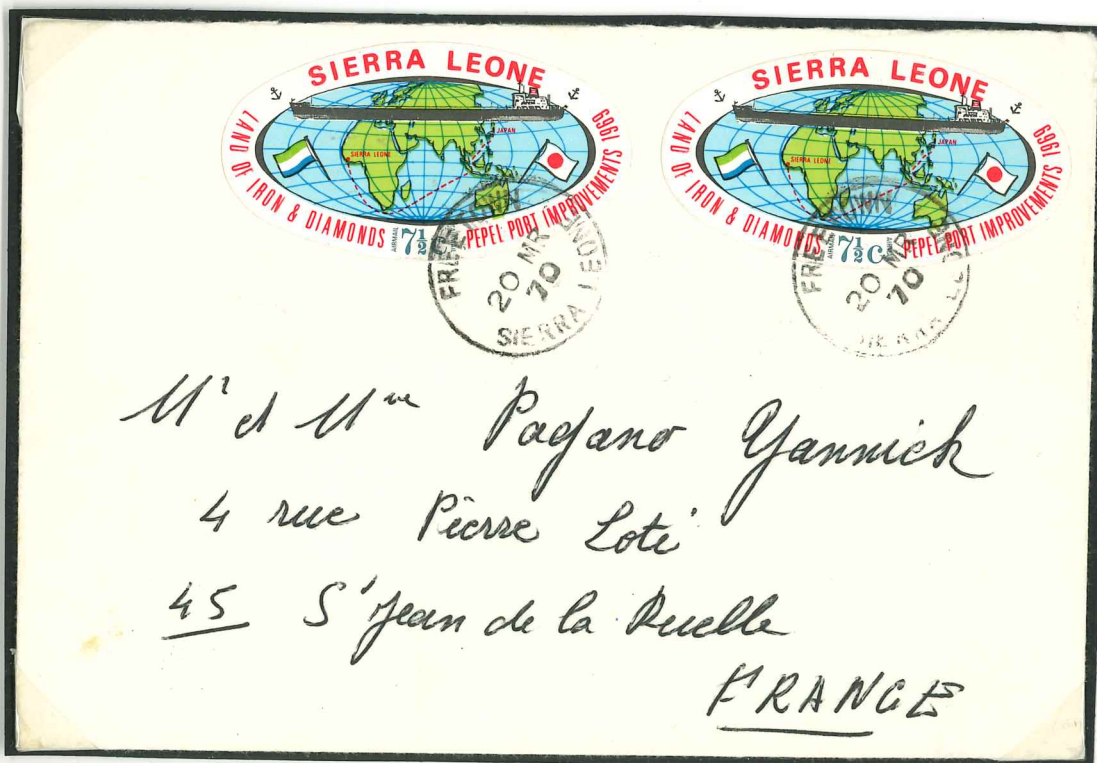 SIERRA LEONE
LAND OF IRON & DIAMONDS
PEPEL PORT IMPROVEMENTS 1969
JAPAN
SIERRA LEONE
AIRMAIL 7½C
FREETOWN
20 MR
70
SIERRA LEONE
SIERRA LEONE
LAND OF IRON & DIAMONDS
PEPEL PORT IMPROVEMENTS 1969
JAPAN
SIERRA LEONE
AIRMAIL 7½C
FREETOWN
20 MR
70
SIERRA LEONE
Mr et Mme Pagano Yannick
4 rue Pierre Loti
45 St Jean de la Ruelle
FRANCE